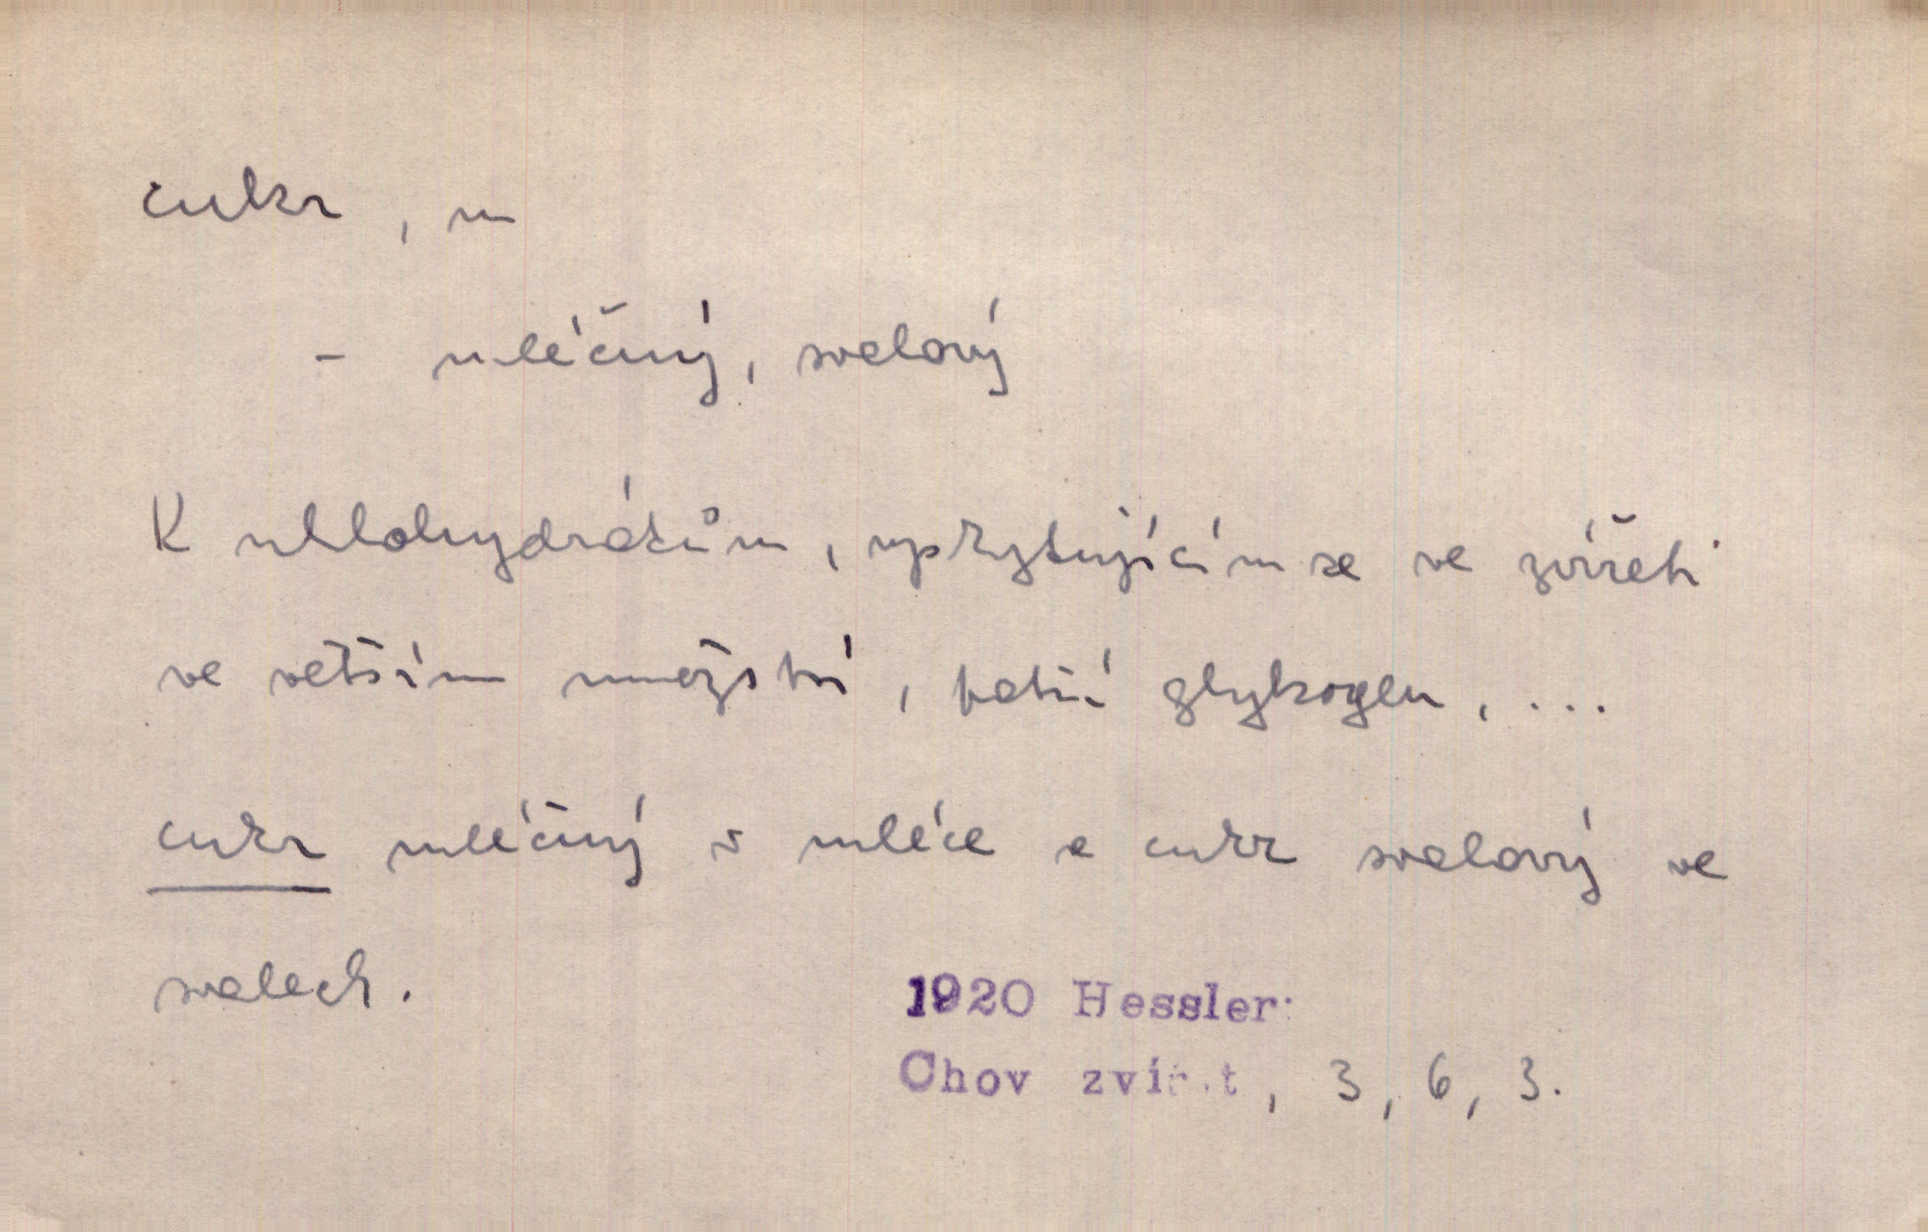 cukr, m
- mléčný, svalový
K uhlohydrátům, vyskytujícím se ve zvířeti
ve větším množství, patří glykogen, ...
cukr mléčný v mléce a cukr svalový ve
svalech.
1920 Hessler:
Chov zvířat, 3, 6, 3.